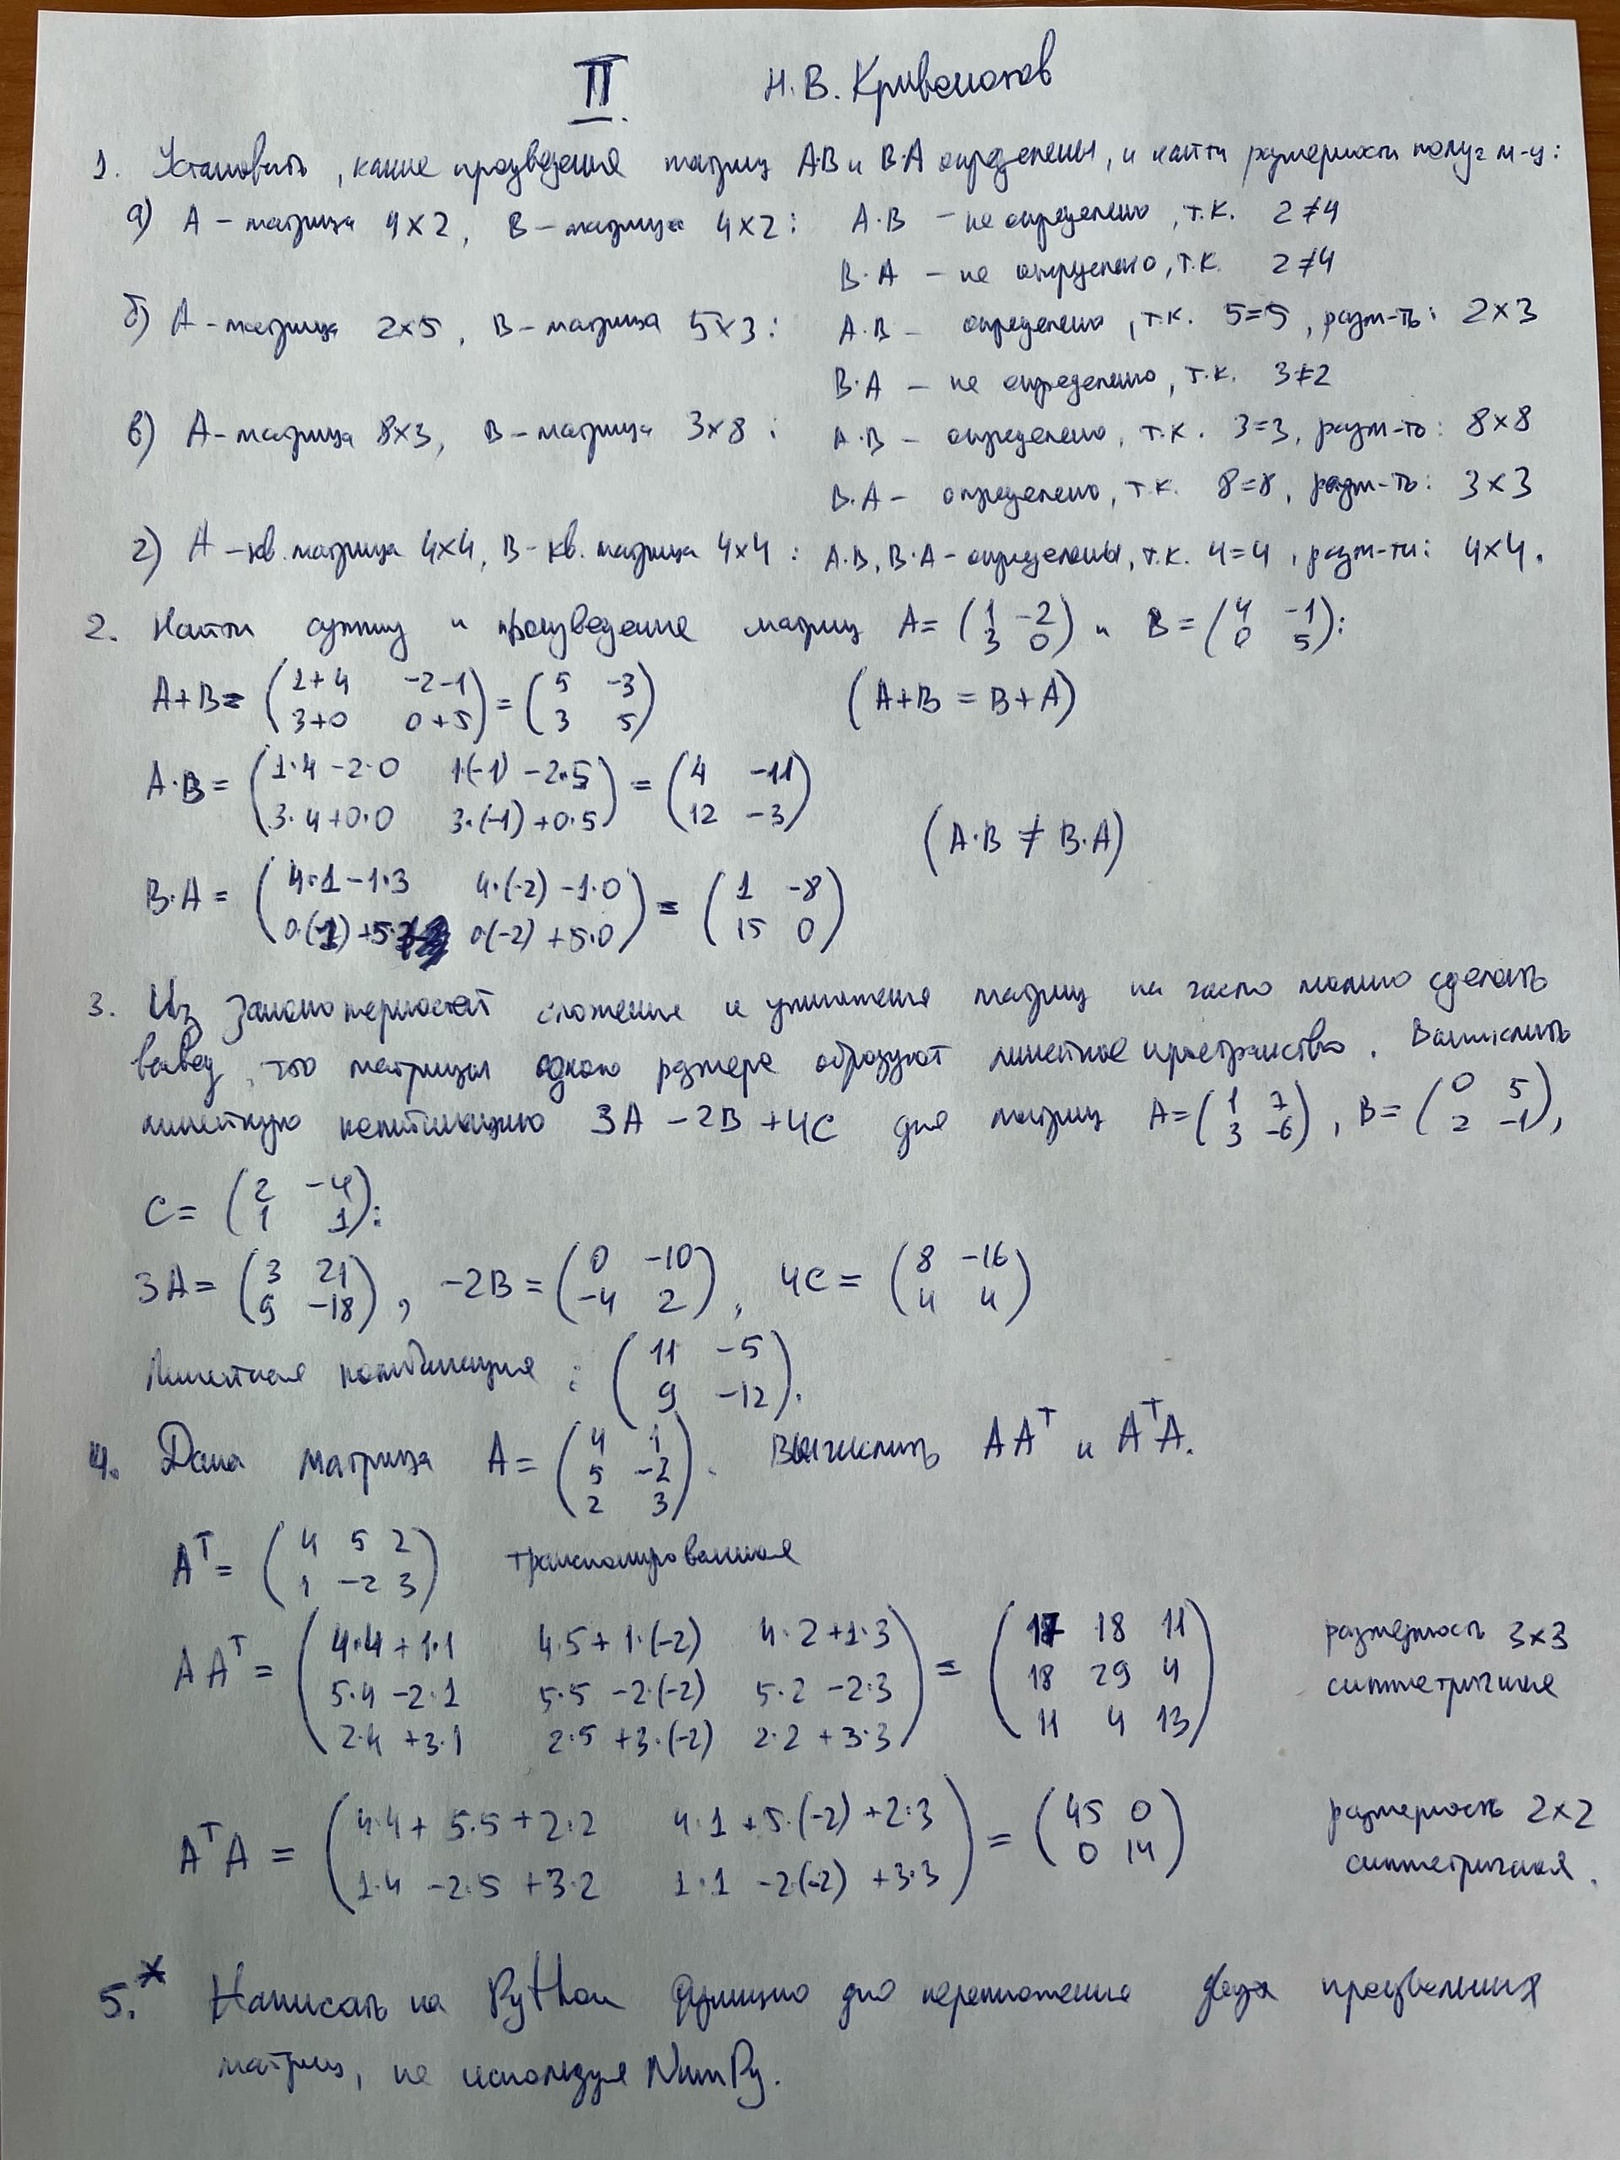 II. Н.В. Кривоногов
1. Установить, какие произведения матриц A·B и B·A определены, и найти размерности получ м-ц:
а) A – матрица 4×2, B – матрица 4×2: A·B – не определено, т.к. 2≠4
B·A – не определено, т.к. 2≠4
б) A – матрица 2×5, B – матрица 5×3: A·B – определено, т.к. 5=5, разм-ть: 2×3
B·A – не определено, т.к. 3≠2
в) A – матрица 8×3, B – матрица 3×8: A·B – определено, т.к. 3=3, разм-ть: 8×8
B·A – определено, т.к. 8=8, разм-ть: 3×3
г) A – кв. матрица 4×4, B – кв. матрица 4×4: A·B, B·A – определены, т.к. 4=4, разм-ти: 4×4.
2. Найти сумму и произведение матриц A= (1 -2 и B = (4 -1
3 0) 0 5):
A+B= (1+4 -2-1 = (5 -3 (A+B = B+A)
3+0 0+5) 3 5)
A·B = (1·4-2·0 1·(-1)-2·5 = (4 -11
3·4+0·0 3·(-1)+0·5) 12 -3) (A·B ≠ B·A)
B·A = (4·1-1·3 4·(-2)-1·0 = (1 -8
0·(1)+5· 0(-2)+5·0) 15 0)
3. Из закономерностей сложения и умножения матриц на число можно сделать
вывод, что матрицы одного размера образуют линейное пространство. Вычислить
линейную комбинацию 3A-2B+4C для матриц A= (1 7 , B= (0 5
3 -6) 2 -1),
C= (2 -4
1 1):
3A= (3 21 , -2B= (0 -10 , 4C= (8 -16
9 -18) -4 2) 4 4)
Линейная комбинация: (11 -5
9 -12).
4. Дана матрица A= (4 1 . Вычислить AAᵀ и AᵀA.
5 -2
2 3)
Aᵀ= (4 5 2 транспонированная
1 -2 3)
AAᵀ = (4·4+1·1 4·5+1·(-2) 4·2+1·3 = (17 18 11 размерность 3×3
5·4-2·1 5·5-2·(-2) 5·2-2·3 18 29 4 симметричная
2·4+3·1 2·5+3·(-2) 2·2+3·3) 11 4 13)
AᵀA = (4·4+5·5+2·2 4·1+5·(-2)+2·3 = (45 0 размерность 2×2
1·4-2·5+3·2 1·1-2(-2)+3·3) 0 14) симметричная.
5.* Написать на Python функцию для перемножения двух произвольных
матриц, не используя NumPy.